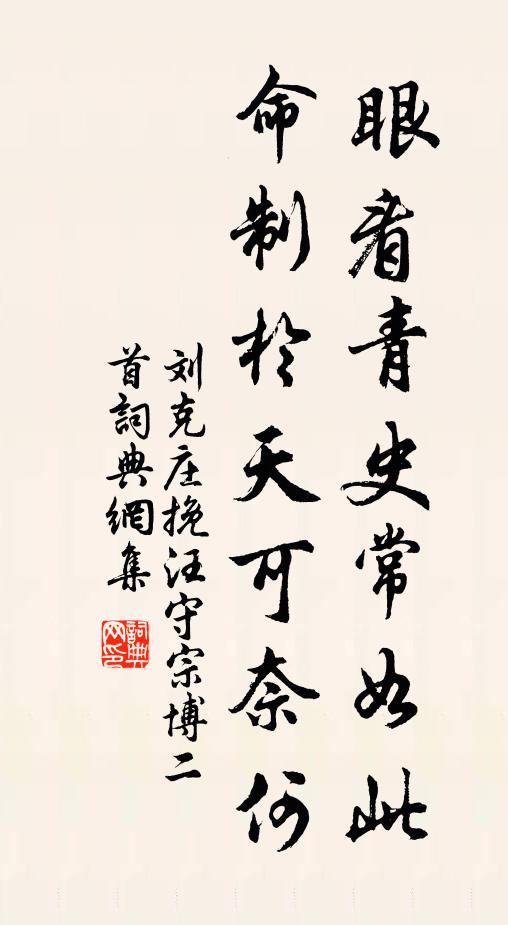 眼看青史常如此
命制於天可奈何
刘克庄挽汪守宗博二
首詞典網集
詞典
网印